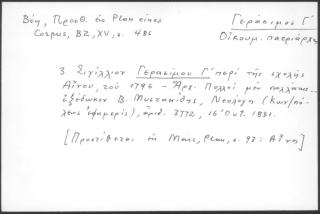 Βέη, Προσθ. ἐν Plan eines
Corpus, BZ, XV, σ. 486
Γεράσιμος Γ΄
Οἰκουμ. πατριάρχης
3. Σιγίλλιον Γερασίμου Γ΄ περὶ τῆς σχολῆς
Αἴνου, τοῦ 1796 - Ἀρχ. Πολλοὶ μὲν πολλάκις..
ἐξέδωκεν Β. Μυστακίδης, Νεολόγῳ (Κων/πό-
λεως ἐφημερίς), ἀριθ. 3772, 16 Ὀκτ. 1881.
[Προστίθεται ἐν Marc, Plan, σ. 93: Αἶνος]